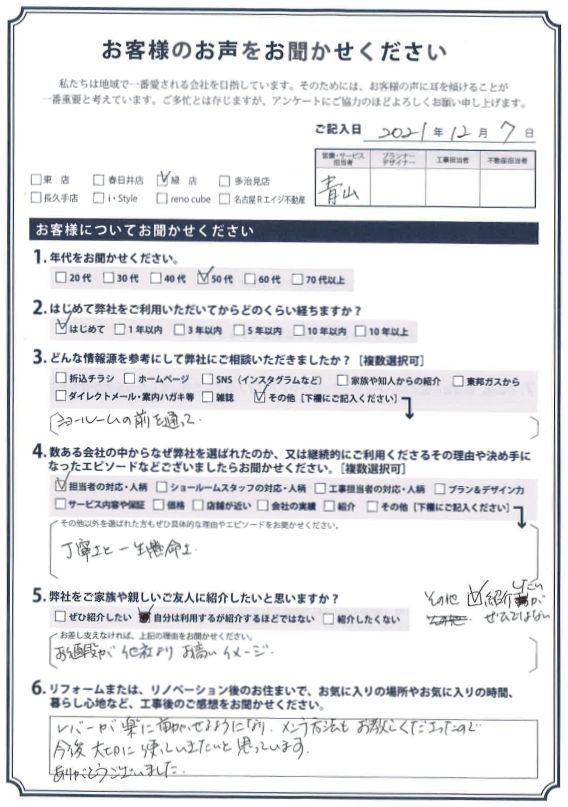 お客様のお声をお聞かせください
私たちは地域で一番愛される会社を目指しています。そのためには、お客様の声に耳を傾けることが
一番重要と考えています。ご多忙とは存じますが、アンケートにご協力のほどよろしくお願い申し上げます。
ご記入日 2021年 12月 7日
営業・サービス担当者 プランナーデザイナー 工事担当者 不動産担当者
青山
□東 店 □春日井店 ☑緑 店 □多治見店
□長久手店 □i・Style □reno cube □名古屋Rエイジ不動産
お客様についてお聞かせください
1. 年代をお聞かせください。
□20代 □30代 □40代 ☑50代 □60代 □70代以上
2. はじめて弊社をご利用いただいてからどのくらい経ちますか？
☑はじめて □1年以内 □3年以内 □5年以内 □10年以内 □10年以上
3. どんな情報源を参考にして弊社にご相談いただきましたか？［複数選択可］
□折込チラシ □ホームページ □SNS（インスタグラムなど） □家族や知人からの紹介 □東邦ガスから
□ダイレクトメール・案内ハガキ等 □雑誌 ☑その他［下欄にご記入ください］
ショールームの前を通って.
4. 数ある会社の中からなぜ弊社を選ばれたのか、又は継続的にご利用くださるその理由や決め手に
なったエピソードなどございましたらお聞かせください。［複数選択可］
☑担当者の対応・人柄 □ショールームスタッフの対応・人柄 □工事担当者の対応・人柄 □プラン＆デザイン力
□サービス内容や保証 □価格 □店舗が近い □会社の実績 □紹介 □その他［下欄にご記入ください］
その他以外を選ばれた方もぜひ具体的な理由やエピソードをお聞かせください。
丁寧さと一生懸命さ
5. 弊社をご家族や親しいご友人に紹介したいと思いますか？
□ぜひ紹介したい ■自分は利用するが紹介するほどではない □紹介したくない
その他 ☑紹介したいが
ぜひではない
お差し支えなければ、上記の理由をお聞かせください。
お値段が他社よりお高いイメージ.
6. リフォームまたは、リノベーション後のお住まいで、お気に入りの場所やお気に入りの時間、
暮らし心地など、工事後のご感想をお聞かせください。
レバーが楽に動かせるようになり、メンテ方法もお教えくださったので
今後大切に使っていきたいと思っています.
ありがとうございました.